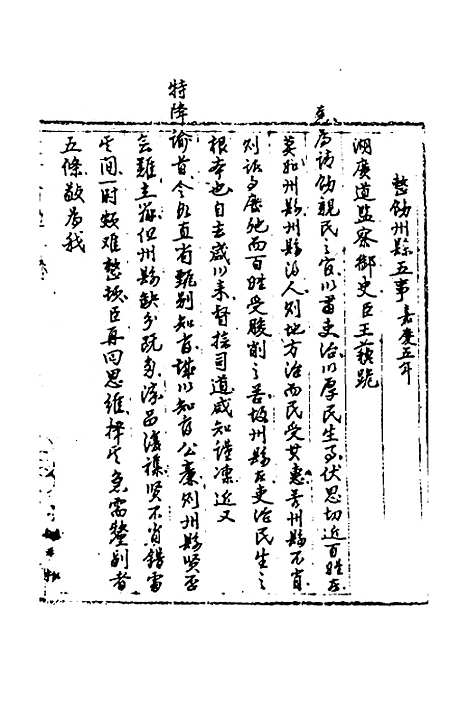 整飭州縣五事 嘉慶五年
湖廣道監察御史臣王蘇跪
奏為請飭親民之官以肅吏治以厚民生事伏思切近百姓者
莫如州縣州縣得人則地方治而民受其惠若州縣不肖
則諸事廢弛而百姓受朘削之苦故州縣在吏治民生之
根本也自去歲以來督撫司道咸知謹凜近又
特降諭旨令各直省甄別知府據以知府公廉則州縣賢否
去難主薄但州縣缺分既多流品復襍賢不肖錯雷
其間一時頗難整頓臣再四思維擇其急需釐剔者
五條敬為我